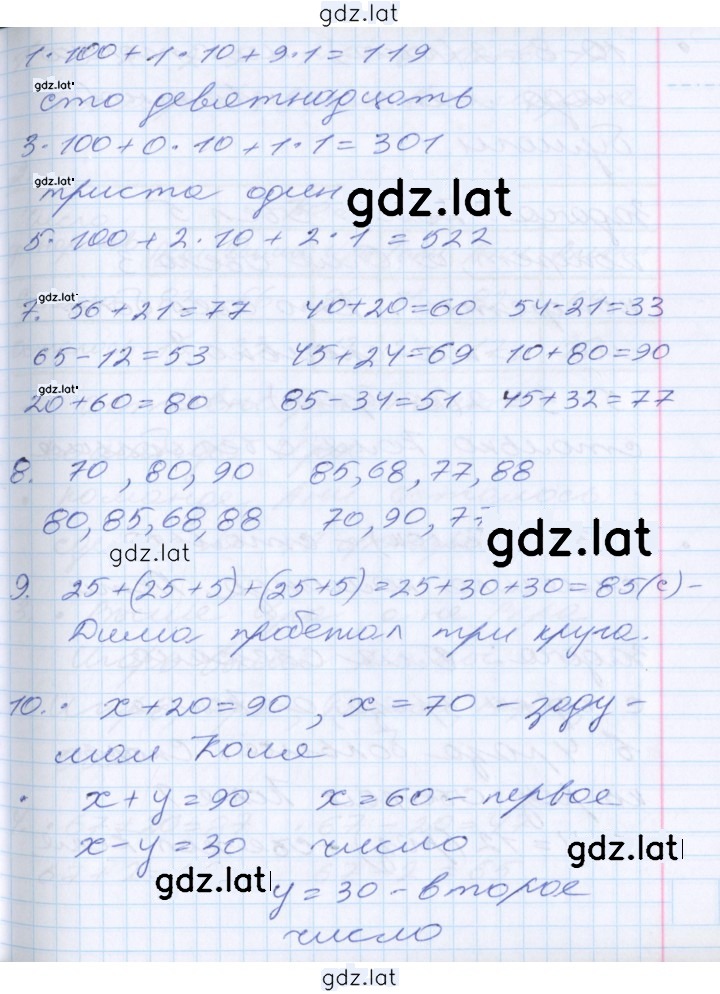 gdz.lat
1·100+1·10+9·1=119
gdz.lat
сто девятнадцать
3·100+0·10+1·1=301
gdz.lat
триста один
gdz.lat
5·100+2·10+2·1=522
gdz.lat
7. 56+21=77 40+20=60 54-21=33
65-12=53 45+24=69 10+80=90
gdz.lat
20+60=80 85-34=51 45+32=77
8. 70, 80, 90 85, 68, 77, 88
80, 85, 68, 88 70, 90,
gdz.lat
gdz.lat
9. 25+(25+5)+(25+5)=25+30+30=85(с)-
Дима пробежал три круга.
10. · x+20=90, x=70 - заду-
мал Коля
· x+y=90 x=60 - первое
x-y=30 число
gdz.lat
gdz.lat
y=30 - второе
число
gdz.lat